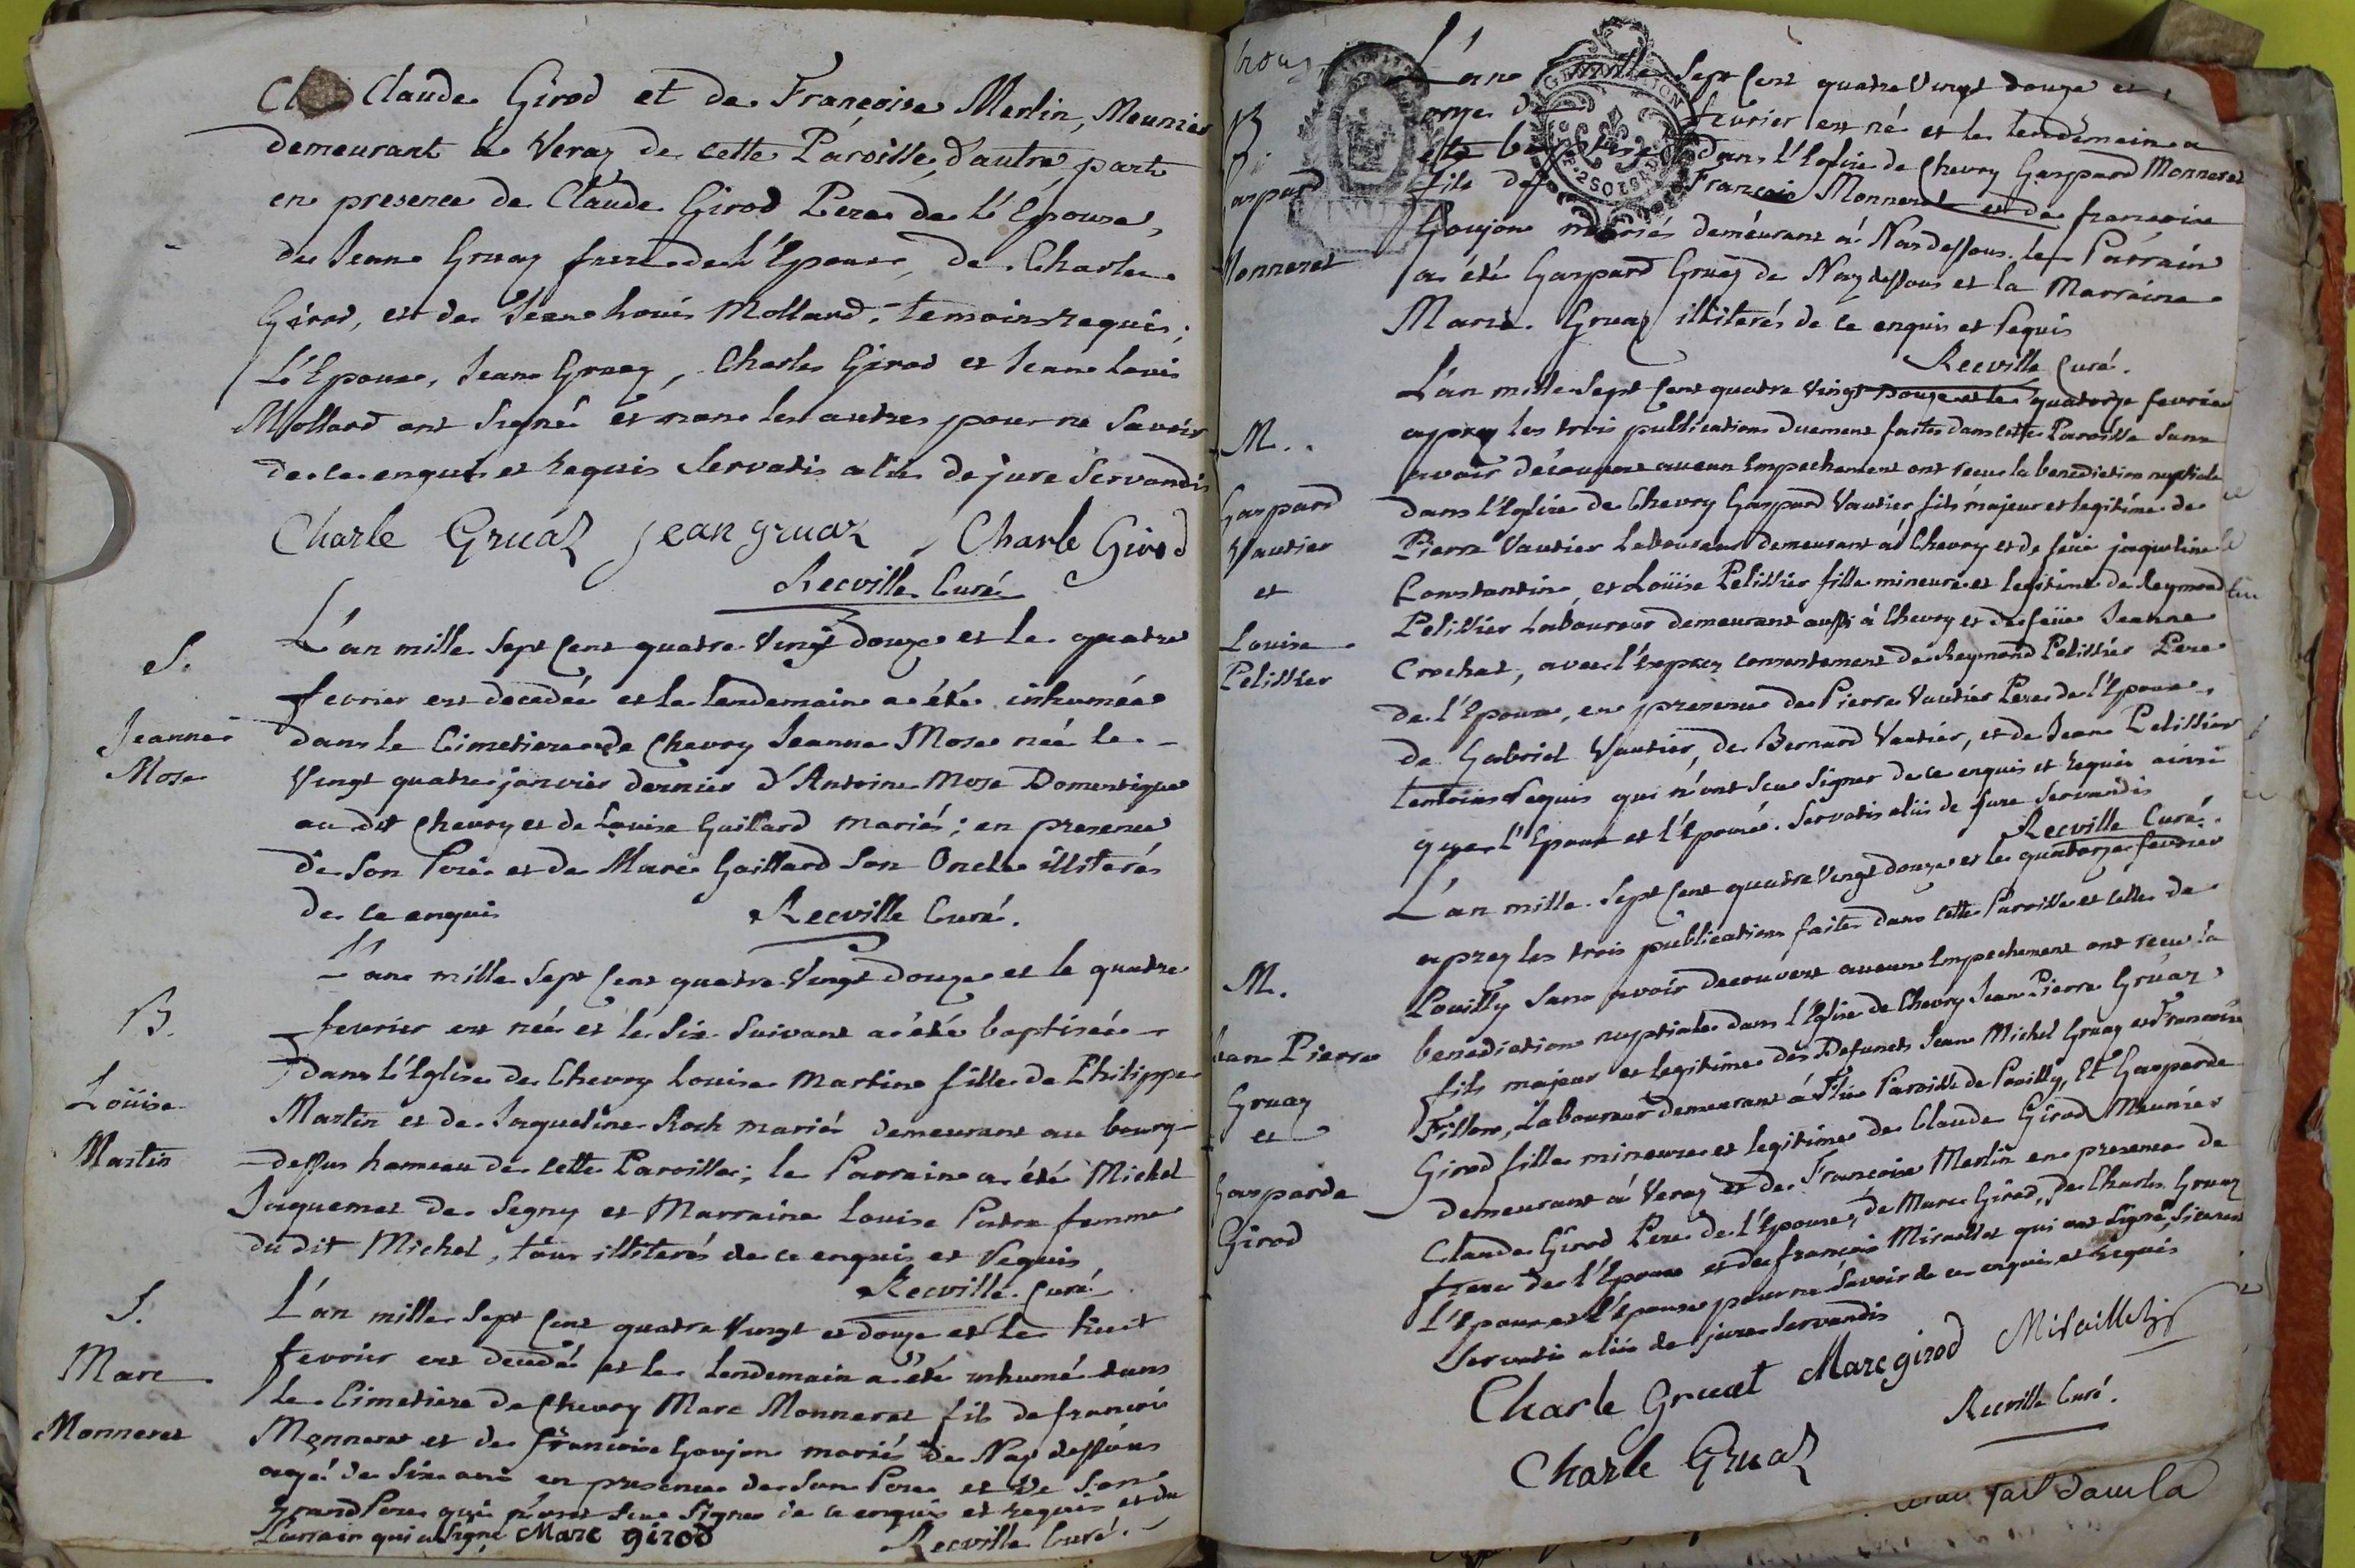 Claude Girod et de Françoise Merlin, Meunier
demeurant à Veraz de cette Paroisse, d'autre part
en presence de Claude Girod Pere de l'Epouse,
de Jean Gruaz frere de l'Epoux, de Charles
Girod, et de Jean Louis Mollard, temoins requis;
L'Epoux, Jean Gruaz, Charles Girod et Jean Louis
Mollard ont Signé et non les autres pour ne Savoir
de ce enquis et requis Servatis aliis de jure Servandis
Charle Gruaz jean gruaz Charle Girod
Recville Curé
S.
Jeanne
Mose
L'an mille Sept Cent quatre Vingt douze et le quatre
fevrier est decedée et le lendemain a été inhumée
dans le Cimetiere de Chevry Jeanne Mose née le
Vingt quatre janvier dernier d'Antoine Mose Domestique
au dit Chevry et de Louise Gaillard mariés; en presence
de Son Pere et de Marc Gaillard Son Oncle illiterés
de ce enquis Recville Curé.
B.
Loüise
Martin
L'an mille Sept Cent quatre Vingt douze et le quatre
fevrier est née et le Six Suivant a été baptisée
dans l'Eglise de Chevry Louise Martin fille de Philippe
Martin et de Jaqueline Roch mariés demeurant au bourg
dessus hameau de cette Paroisse; le Parrain a été Michel
Jaquemet de Segny et Marraine Louise femme
du dit Michel, tous illiterés de ce enquis et Requis
Recville Curé
S.
Marc
Monneret
L'an mille Sept Cent quatre Vingt et douze et le huit
fevrier est decedé et le Lendemain a été inhumé dans
le Cimetiere de Chevry Marc Monneret fils de françois
Monneret et de françoise Goujon mariés de Naz dessous
agé de Six ans en presence de Son Pere et de Son
grand Pere qui n'ont Sçu Signer de ce enquis et requis et du
Parrain qui a Signé Marc girod Recville Curé.
B
Gaspard
Monneret
L'an mille Sept Cent quatre Vingt douze et
onze fevrier est né et le lendemain a
été dans l'Eglise de Chevry Gaspard Monneret
fils de François Monneret et de françoise
Goujon mariés demeurant à Naz dessous. le Parrain
a été Gaspard Gruaz de Naz dessous et la Marraine
Marie Gruaz illiterés de ce enquis et Requis
Recville Curé.
M.
Gaspard
Vautier
et
Louise
Pelissier
L'an mille Sept Cent quatre Vingt Douze et le quatorze fevrier
aprez les trois publications duement faites dans cette Paroisse Sans
avoir découvert aucun Empechement ont recu la benediction nuptiale
dans l'Eglise de Chevry Gaspard Vautier fils majeur et legitime de
Pierre Vautier Laboureur demeurant à Chevry et de feüe jaqueline
Constantin, et Loüise Pelissier fille mineure et legitime de Reymond
Pelissier Laboureur demeurant aussi à Chevry et de feüe Jeanne
Crochat, avec l'exprez consentement de Reymond Pelissier Pere
de l'Epouse, en presence de Pierre Vautier Pere de l'Epoux,
de Gabriel Vautier, de Bernard Vautier, et de Jean Pelissier
temoins Requis qui n'ont Scu Signer de ce enquis et Requis ainsi
que l'Epoux et l'Epouse. Servatis aliis de jure Servandis
Recville Curé.
M.
Jean Pierre
Gruaz
et
Gasparde
Girod
L'an mille Sept Cent quatre Vingt douze et le quatorze fevrier
aprez les trois publications faites dans cette Paroisse et celle de
Pouilly Sans avoir decouvert aucun Empechement ont recu la
benediction nuptiale dans l'Eglise de Chevry Jean Pierre Gruaz
fils majeur et legitime des Defunts Jean Michel Gruaz et Françoise
Fillon, Laboureur demeurant à Flie Paroisse de Pouilly, Et Gasparde
Girod fille mineure et legitime de Claude Girod Meunier
demeurant à Veraz et de Françoise Merlin en presence de
Claude Girod Pere de l'Epouse, de Marc Girod, de Charles Gruaz
frere de l'Epoux et de françois Miraillet qui ont Signé,
l'Epoux et l'Epouse pour ne Savoir de ce enquis et requis
Servatis aliis de jure Servandis
Charle Gruat Marc girod Miraillet
Charle Gruaz Recville Curé.